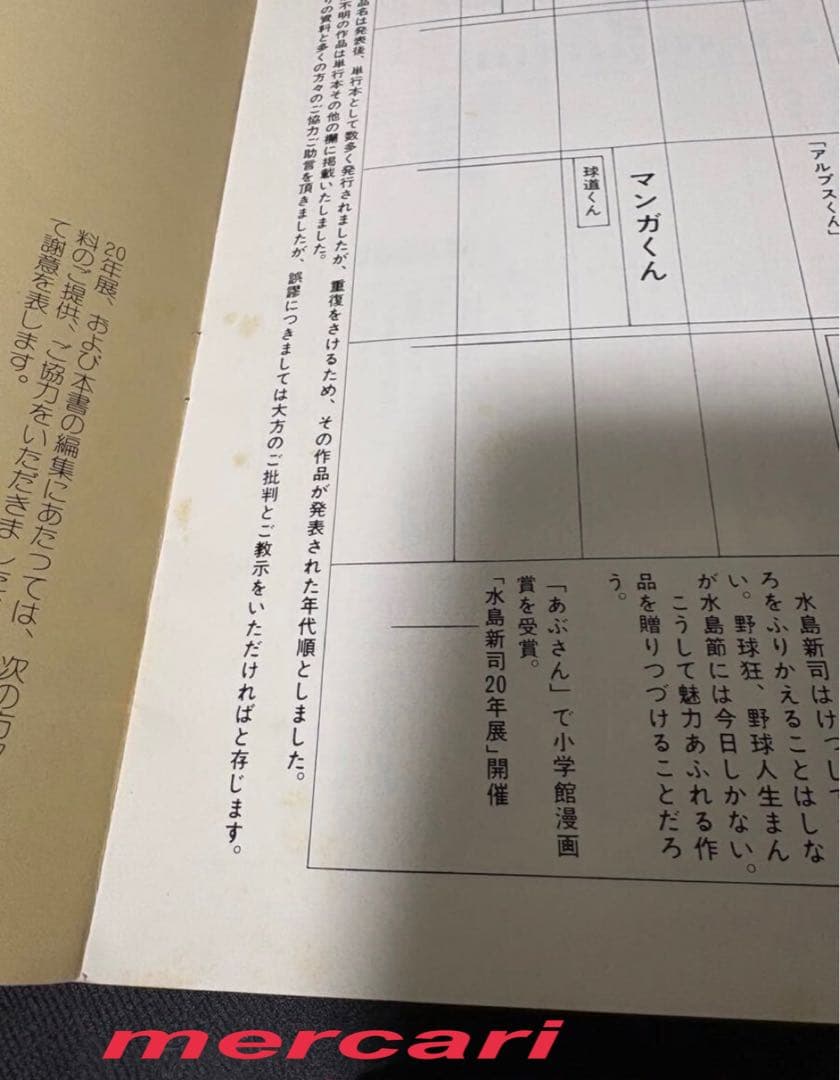 「アルプスくん」
マンガくん
球道くん
水島新司はけっして
ろをふりかえることはしな
い。野球狂、野球人生まん
が水島節には今日しかない。
こうして魅力あふれる作
品を贈りつづけることだろ
う。
「あぶさん」で小学館漫画
賞を受賞。
「水島新司20年展」開催
品名は発表後、単行本として数多く発行されましたが、重複をさけるため、その作品が発表された年代順としました。
不明の作品は単行本その他の欄に掲載いたしました。
りの資料と多くの方々のご協力ご助言を頂きましたが、誤謬につきましては大方のご批判とご教示をいただければと存じます。
20年展、および本書の編集にあたっては、次の方々
料のご提供、ご協力をいただきました
て謝意を表します。
mercari